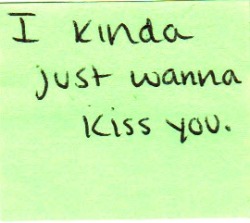 I kinda
just wanna
kiss you.